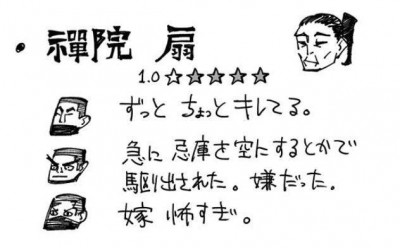 ・禪院 扇
1.0☆☆☆☆☆
ずっと ちょっとキレてる。
急に 忌庫を空にするとかで
駆り出された。嫌だった。
嫁 怖すぎ。